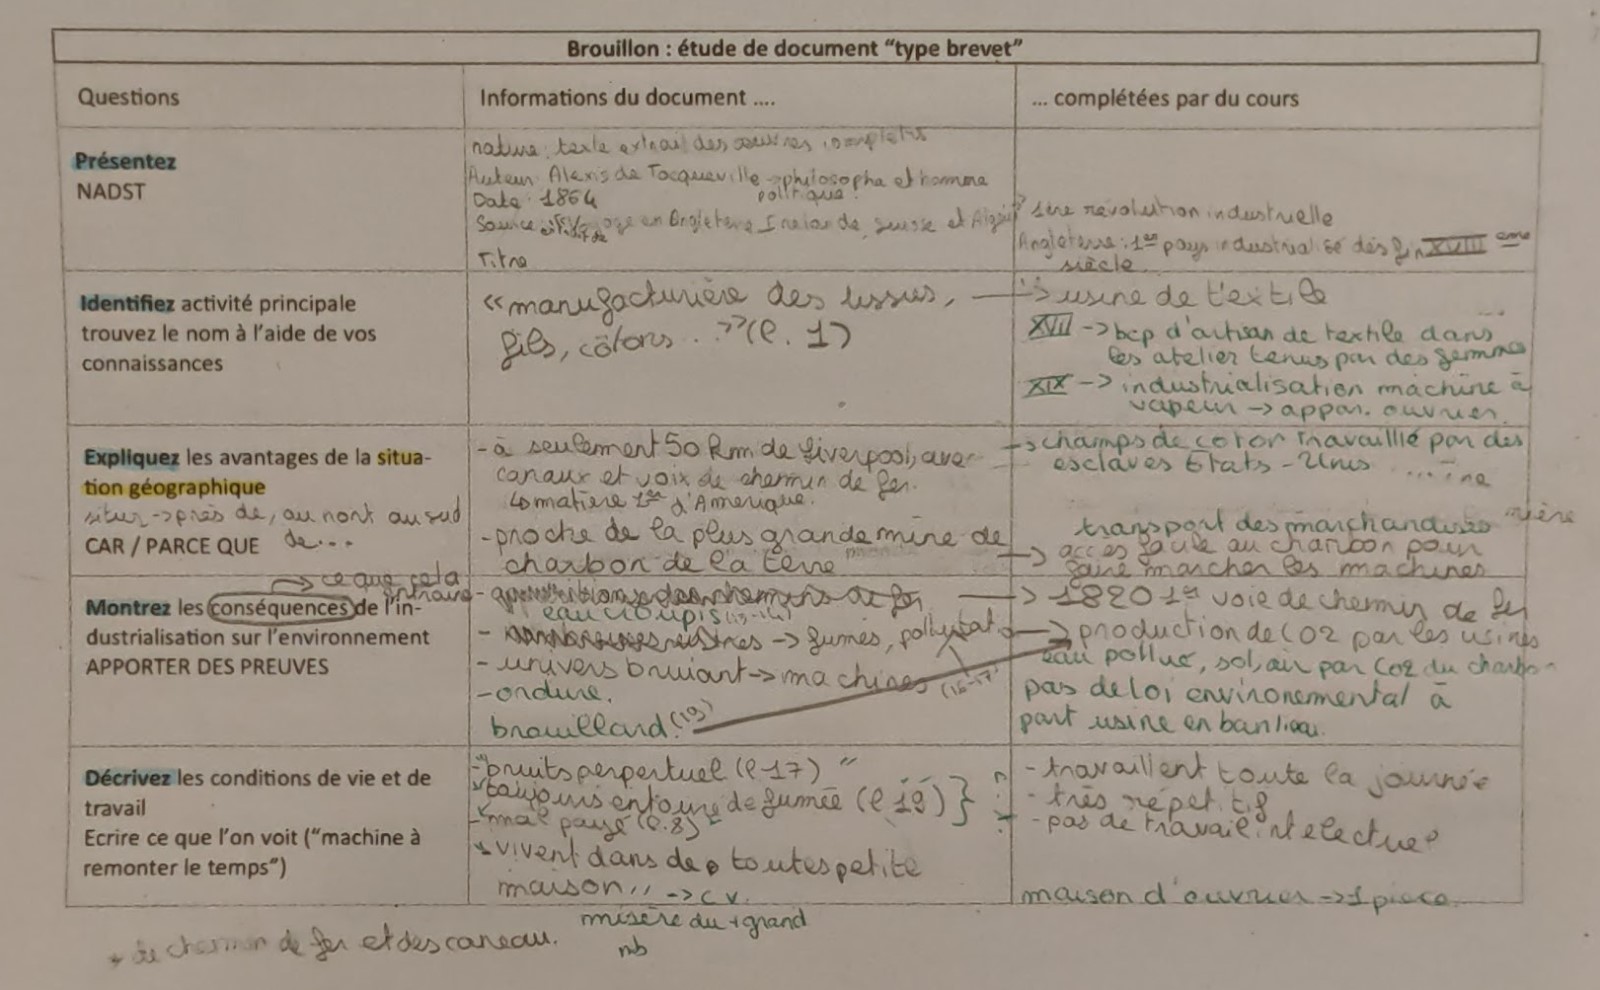 Brouillon : étude de document “type brevet”
Questions
Informations du document ....
... complétées par du cours
Présentez
NADST
nature : texte extrait des œuvres complètes
Auteur : Alexis de Tocqueville -> philosophe et homme
politique.
Date : 1864
Source : en Angleterre Irelande, Suisse et Algérie
Titre
1ère révolution industruelle
Angleterre : 1er pays industrialisé dès fin XVIII ème
siècle
Identifiez activité principale
trouvez le nom à l’aide de vos
connaissances
"manufacturière des tissus,
fils, côtons..." (l. 1)
-> usine de textile
XVII -> bcp d'artisan de textile dans
les atelier tenus par des femmes
XIX -> industrialisation machine à
vapeur -> appar. ouvrier
Expliquez les avantages de la situa-
tion géographique
situer -> près de, au nort au sud
CAR / PARCE QUE de...
- à seulement 50 km de Liverpool, avec
canaux et voix de chemin de fer.
matière 1ère d'Amerique.
- proche de la plus grande mine de
charbon de la terre
-> champs de coton travaillé par des
esclaves États-Unis
transport des marchandises
-> acces facile au charbon pour
faire marcher les machines
-> ce que cela
entraine
Montrez les conséquences de l’in-
dustrialisation sur l’environnement
APPORTER DES PREUVES
eau croupis
- -> fumés, pollution
- univers bruiant -> machines (16-17)
- ordure.
brouillard (19)
-> 1820 1ère voie de chemin de fer
-> production de CO2 par les usines
eau pollué, sol, air par CO2 du charbon
pas de loi environemental à
part usine en banlieu.
Décrivez les conditions de vie et de
travail
Ecrire ce que l’on voit (“machine à
remonter le temps”)
- "bruits perpertuel (l 17)"
toujours entouré de fumée (l 19)
- mal payé (l. 8)
vivent dans de toutes petite
maison" -> c.v.
misère du + grand
nb
- travaillent toute la journée
- très répetitif
- pas de travail intelectuel
maison d'ouvrier -> 1 piece.
* de chemin de fer et des caneau.